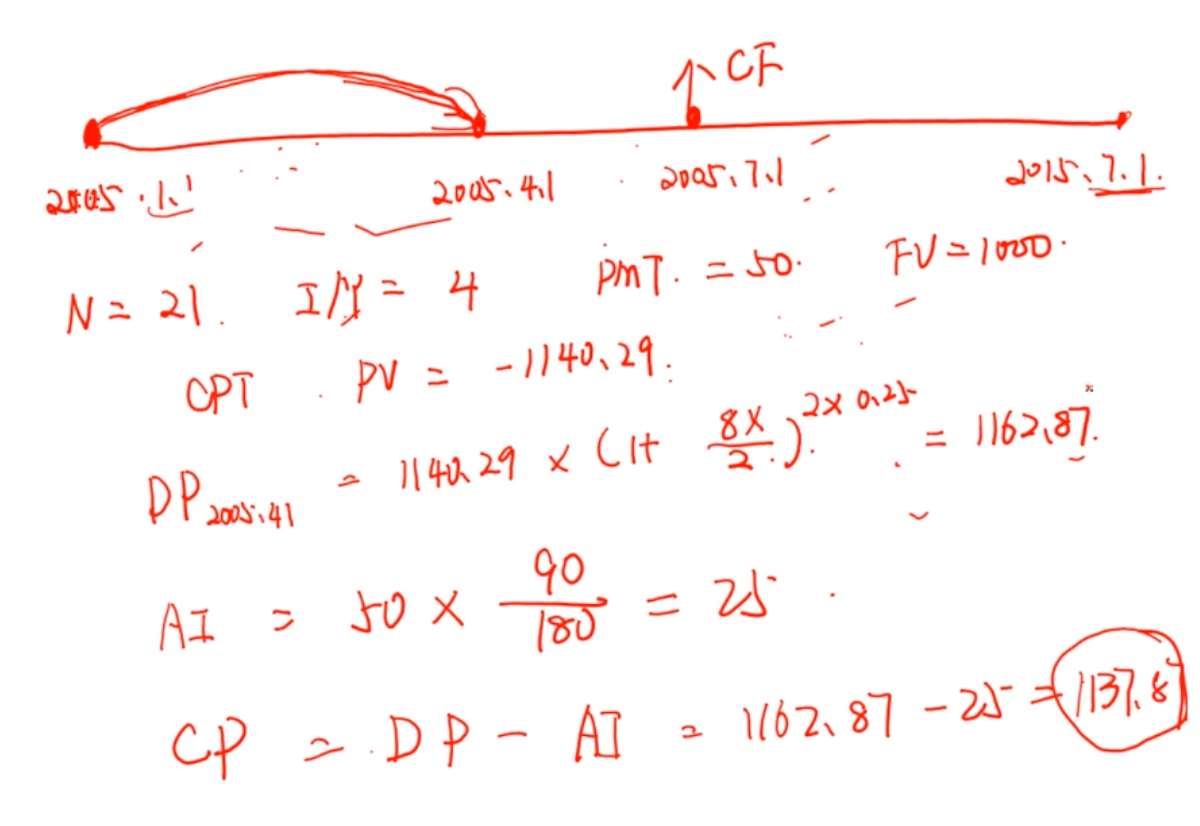 CF
2005.1.1 2005.4.1 2005.7.1 2015.7.1.
N = 21. I/Y = 4 PMT. = 50. FV = 1000.
CPT PV = -1140.29.
DP2005.41 = 1140.29 × (1+ 8%/2)^2×0.25 = 1162.87.
AI = 50 × 90/180 = 25
CP = DP - AI = 1162.87 - 25 = 1137.8